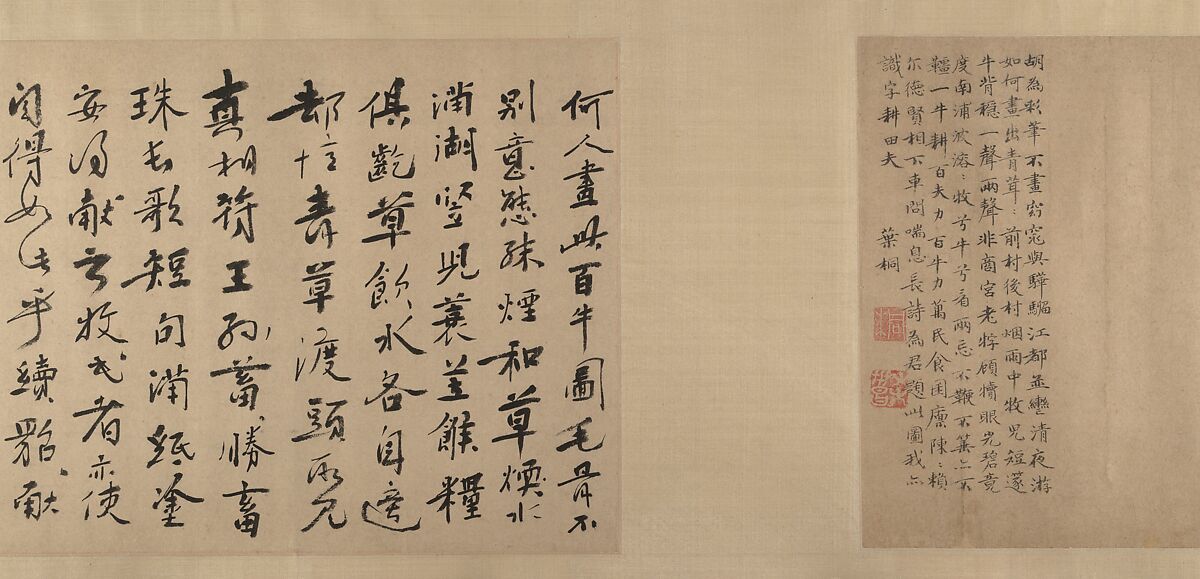 胡為彩筆不畫窈窕與驊騮江都並轡清夜游
如何畫出青茸〻前村後村烟雨中牧兒短篴
牛背穩一聲兩聲非商宮老牸顧犢眼光碧竟
度南浦波溶〻牧兮牛兮看兩忘不鞭不箠亦不
韁一牛耕百夫力百牛力萬民食囷廪陳〻賴
尓德賢相下車問喘息長詩為君題此圖我亦
識字耕田夫 葉桐
何人畫此百牛圖毛骨不
别意態殊煙和草煖水
滿湖豎兒蓑笠餱糧
俱齕草飲水各自適
却憶青草渡頭所見
真相符王孫蓄勝畜
珠長歌短句滿紙塗
安得献之牧民者亦使
自得如此乎續貂献